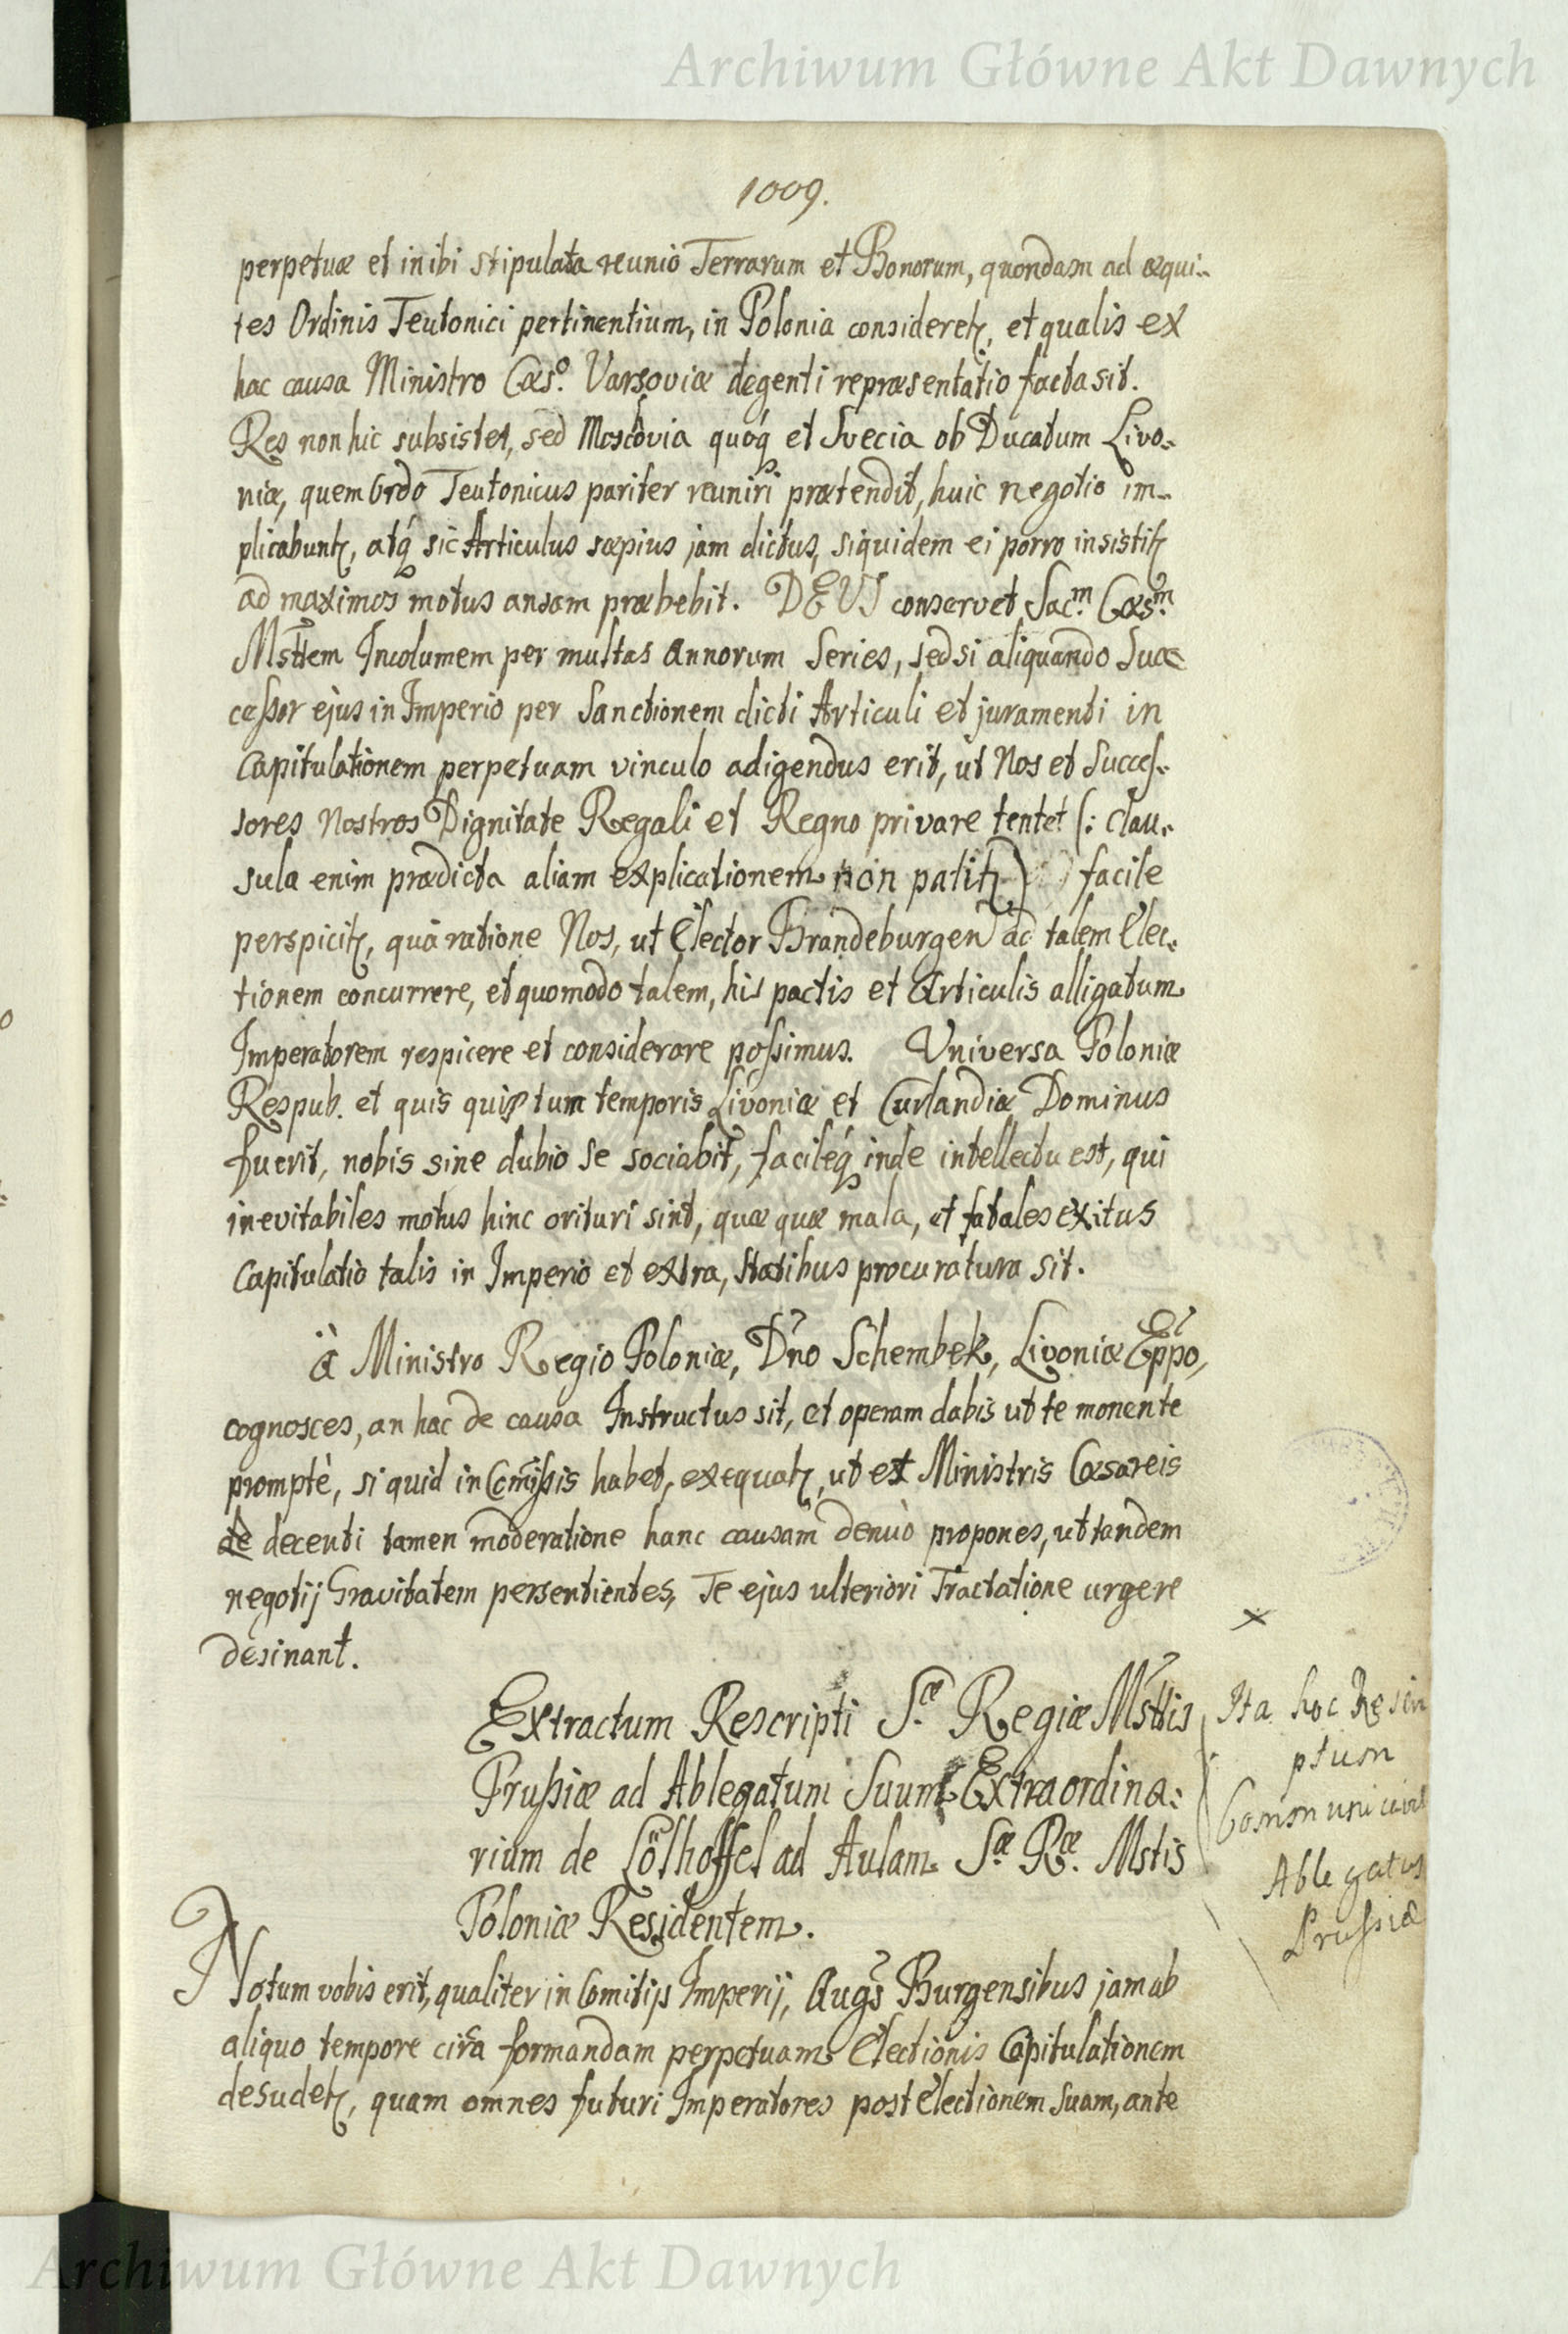 Archiwum Główne Akt Dawnych
1009.
perpetuæ et inibi stipulata reunio Terrarum et Bonorum, quondam ad æqui-
tes Ordinis Teutonici pertinentium, in Polonia consideretꝝ, et qualis ex
hac causa Ministro Cæs.º Varsoviæ degenti repræsentatio facta sit.
Res non hic subsistet, sed Moscovia quoqꝫ et Svecia ob Ducatum Livo-
niæ, quem Ordo Teutonicus pariter reuniri prætendit, huic negotio im-
plicabuntꝝ, atqꝫ sic Articulus sæpius jam dictus, siquidem ei porro insistitꝝ
ad maximos motus ansam præbebit. DEUS conservet Sac.m Cæs.m
Msttem Incolumem per multas Annorum Series, sed si aliquando Suc-
cessor ejus in Imperio per Sanctionem dicti Articuli et juramenti in
Capitulationem perpetuam vinculo adigendus erit, ut Nos et Succes-
sores Nostros Dignitate Regali et Regno privare tentet (: Clau-
sula enim prædicta aliam explicationem non patitꝝ) facile
perspicitꝝ, quâ ratione Nos, ut Elector Brandeburgen ad talem Elec-
tionem concurrere, et quomodo talem, his pactis et Articulis alligatum
Imperatorem respicere et considerare possimus. Universa Poloniæ
Respub. et quis quis tum temporis Livoniæ et Curlandiæ Dominus
fuerit, nobis sine dubio se sociabit, facileqꝫ inde intellectu est, qui
inevitabiles motus hinc orituri sint, quæ quæ mala, et fatales exitus
Capitulatio talis in Imperio et extra, Statibus procuratura sit.
à Ministro Regio Poloniæ, Dno Schembek, Livoniæ Eppo,
cognosces, an hac de causa Instructus sit, et operam dabis ut te monente
promptè, si quid in Comissis habet, exequatꝝ, ut et Ministris Cæsareis
de decenti tamen moderatione hanc causam denuò propones, ut tandem
negotij Gravitatem persentientes, Te ejus ulteriori Tractatione urgere
desinant.
Extractum Rescripti S.æ Regiæ Msttis
Prussiæ ad Ablegatum Suum Extraordina-
rium de Lölhöffel ad Aulam S.æ R.æ Mstis
Poloniæ Residentem.
x
Ita hoc Rescri
ptum
Communicavit
Ablegatus
Prussiæ
Notum vobis erit, qualiter in Comitijs Imperij, Augs Burgensibus jam ab
aliquo tempore circa formandam perpetuam Electionis Capitulationem
desudetꝝ, quam omnes futuri Imperatores post Electionem Suam, ante
Archiwum Główne Akt Dawnych